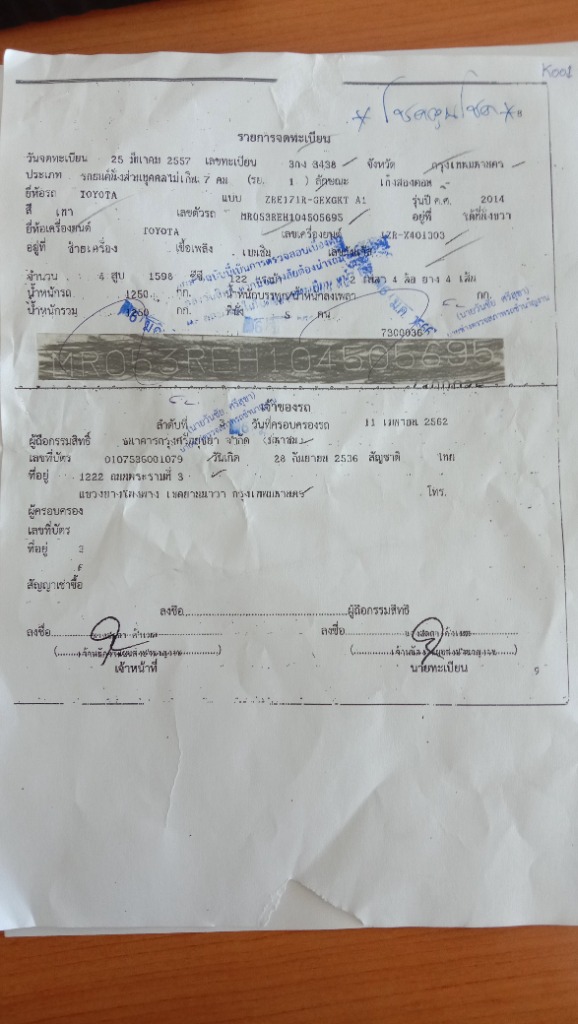 K001
* โชคคูนโชค *
รายการจดทะเบียน
วันจดทะเบียน 25 มีนาคม 2557 เลขทะเบียน 3กง 3438 จังหวัด กรุงเทพมหานคร
ประเภท รถยนต์นั่งส่วนบุคคลไม่เกิน 7 คน (รย. 1 ) ลักษณะ เก๋งสองตอน
ยี่ห้อรถ TOYOTA แบบ ZRE171R-GEXGKT A1 รุ่นปี ค.ศ. 2014
สี เทา เลขตัวรถ MR053REH104505695 อยู่ที่
ยี่ห้อเครื่องยนต์ TOYOTA เลขเครื่องยนต์ 1ZR-X401303
อยู่ที่ ข้างเครื่อง เชื้อเพลิง เบนซิน
จำนวน 4 สูบ 1598 ซีซี 122 2 เพลา 4 ล้อ ยาง 4 เส้น
น้ำหนักรถ 1250 กก. น้ำหนักบรรทุก/น้ำหนักลงเพลา กก.
น้ำหนักรวม 1250 กก. ที่นั่ง 5 คน
7300036
MR053REH104505695
เจ้าของรถ
ลำดับที่ วันที่ครอบครองรถ 11 เมษายน 2562
ผู้ถือกรรมสิทธิ์ ธนาคารกรุงศรีอยุธยา จำกัด (มหาชน)
เลขที่บัตร 0107536001079 วันเกิด 28 กันยายน 2536 สัญชาติ ไทย
ที่อยู่ 1222 ถนนพระรามที่ 3
แขวงบางโพงพาง เขตยานนาวา กรุงเทพมหานคร โทร.
ผู้ครอบครอง
เลขที่บัตร
ที่อยู่ 3
สัญญาเช่าซื้อ
ลงชื่อ ผู้ถือกรรมสิทธิ์
ลงชื่อ ลงชื่อ
เจ้าหน้าที่ นายทะเบียน